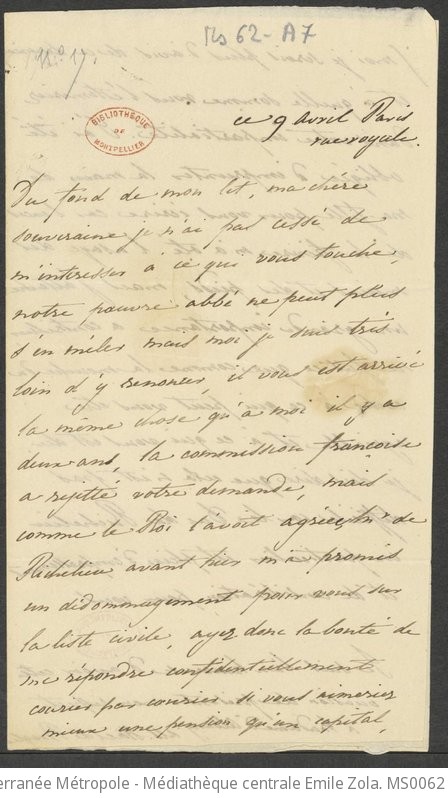 11.° 17.
Ms 62-A7
BIBLIOTHEQUE
DE
MONTPELLIER
ce 9 avril Paris
rue royale.
Du fond de mon lit, ma chère
souveraine je n'ai pas cessé de
m'intresser à ce qui vous touche,
notre pauvre abbé ne peut plus
s'en mêler mais moi je suis très
loin d'y renoncer, il vous est arrivé
la même chose qu'à moi il y a
deux ans, la commission françoise
a rejetté votre demande, mais
comme le Roi l'avoit agréée, Mr de
Richelieu avant hier m'a promis
un dédomagement pour vous sur
la liste civile, ayez donc la bonté de
me répondre confidentiellement
courier par courier si vous aimeriez
mieux une pension qu'un capital,
erranée Métropole - Médiathèque centrale Emile Zola. MS0062